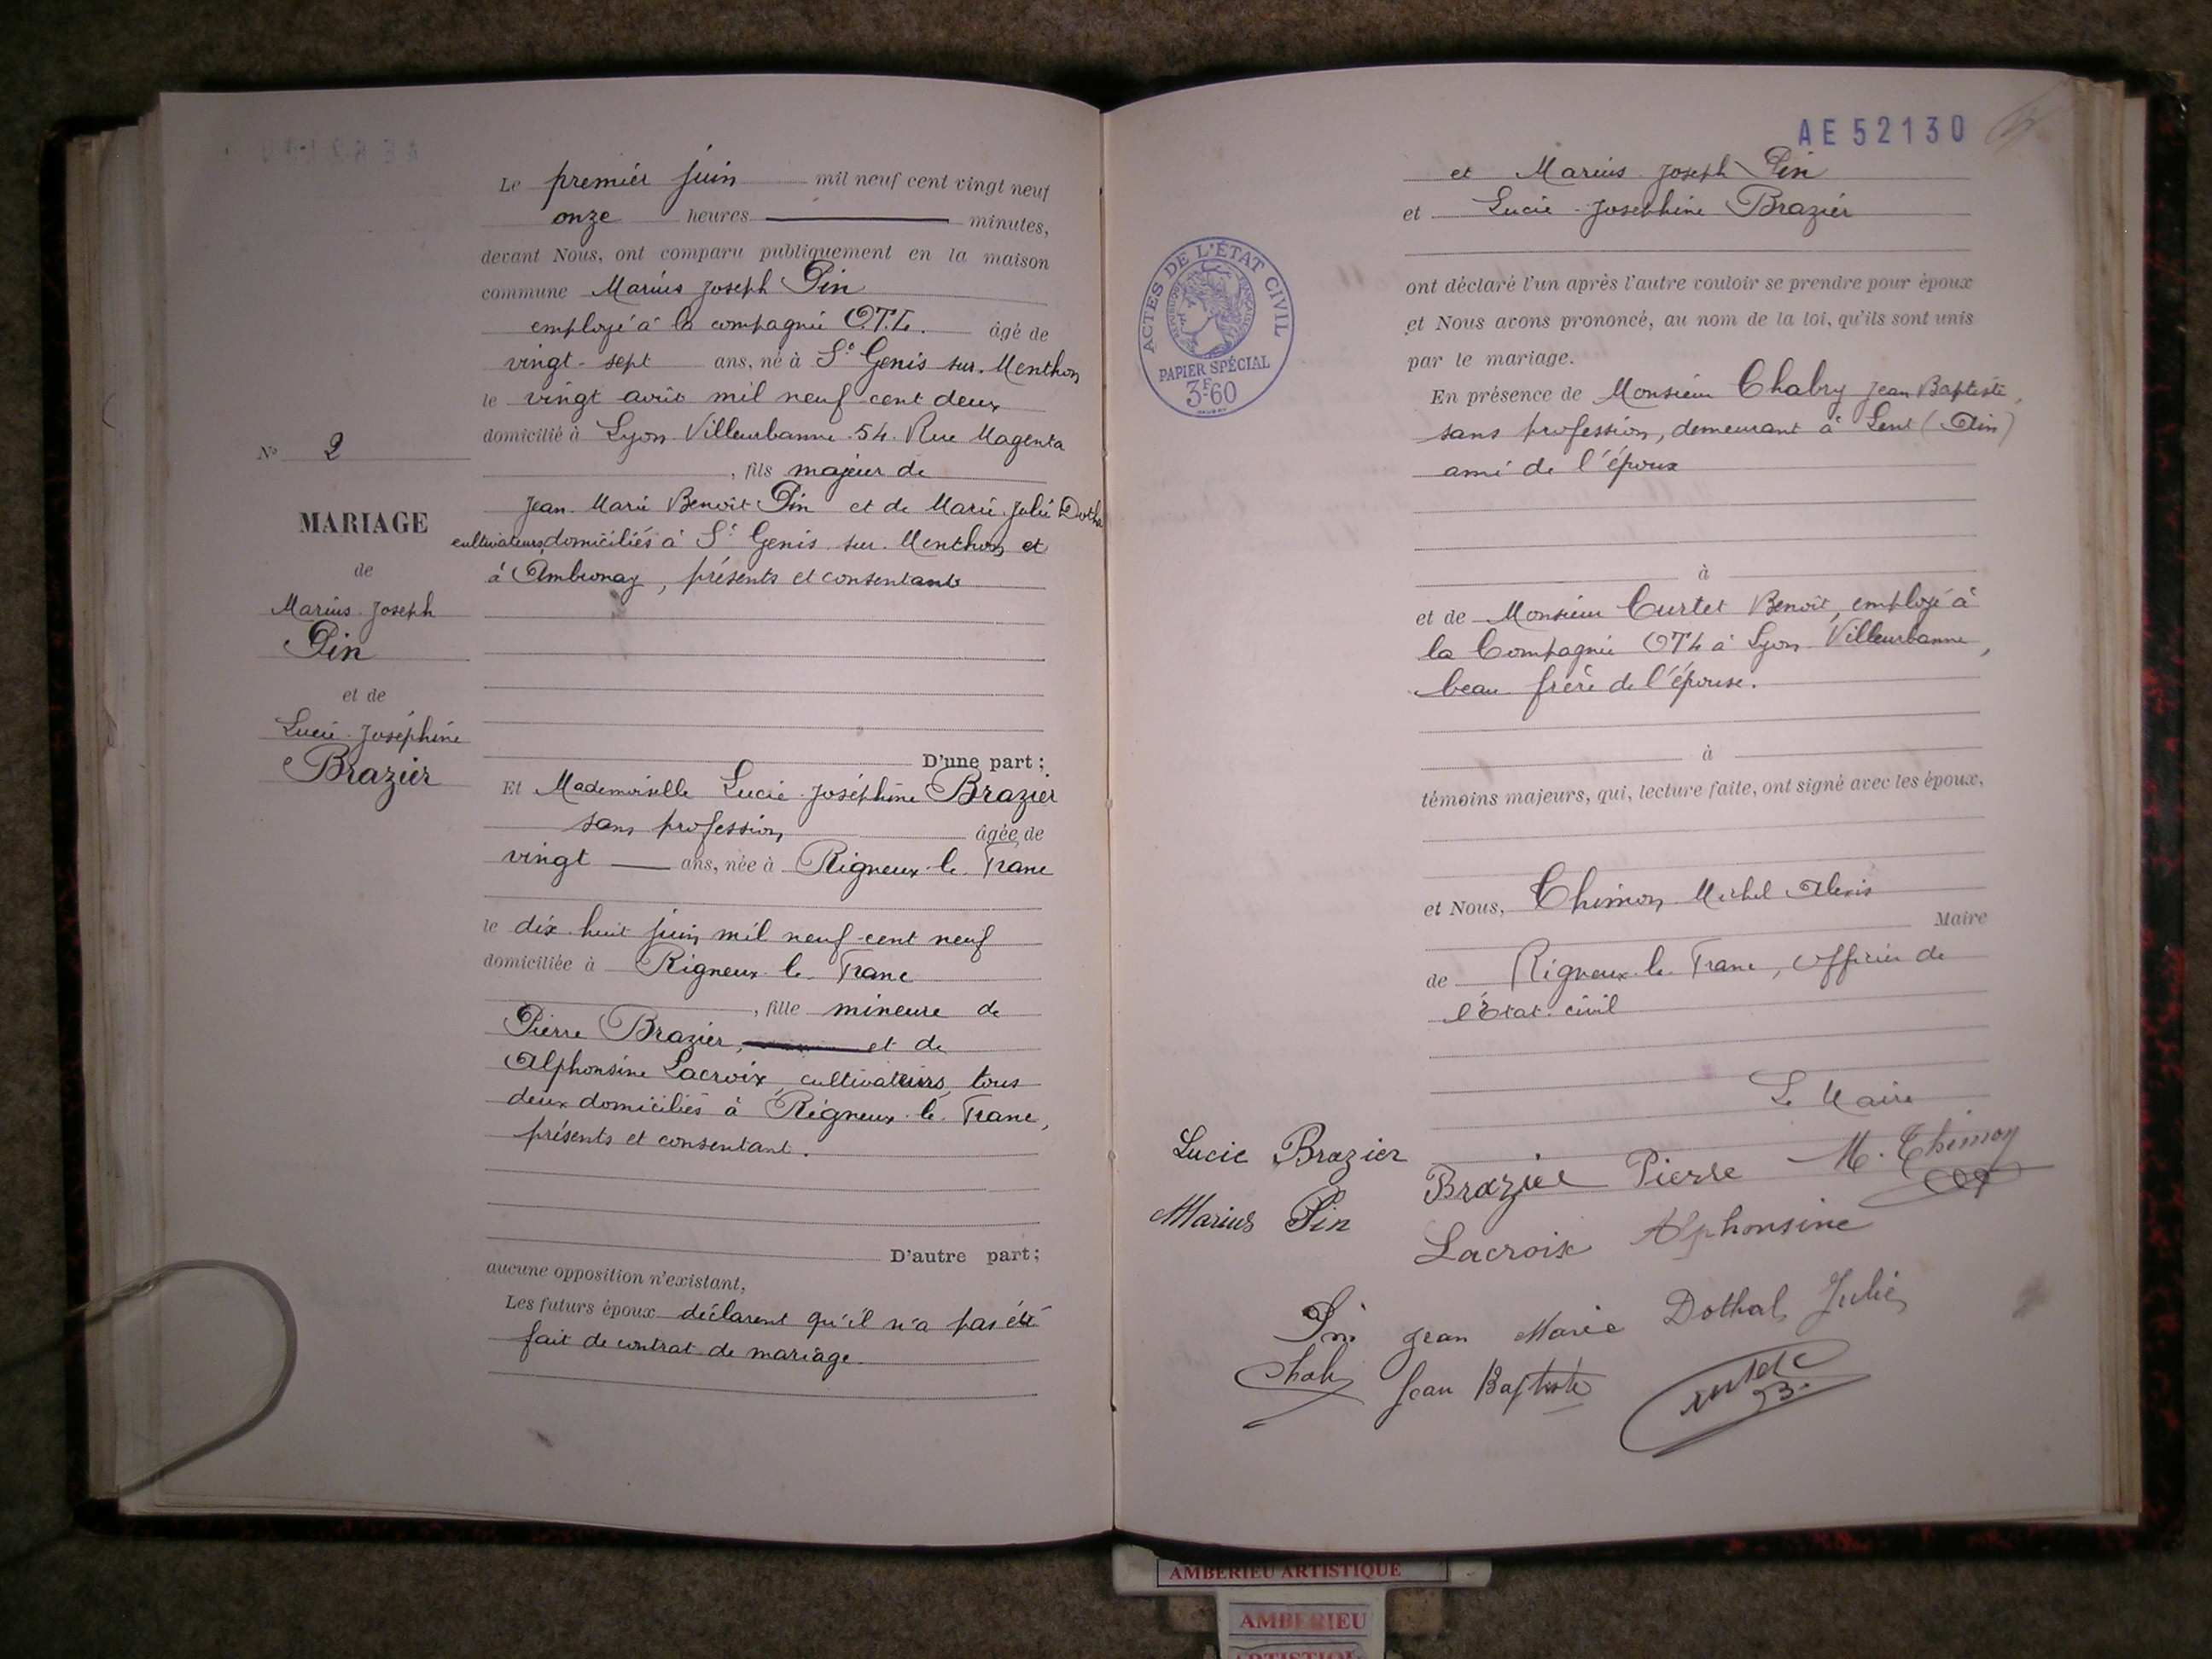 Le premier juin mil neuf cent vingt neuf
onze heures minutes,
devant Nous, ont comparu publiquement en la maison
commune Marius Joseph Pin
employé à la compagnie O.T.L. âgé de
vingt-sept ans, né à St Genis sur Menthon
le vingt août mil neuf cent deux
domicilié à Lyon Villeurbanne 54 Rue Magenta
, fils majeur de
Jean Marie Benoît Pin et de Marie Julie
cultivateurs, domiciliés à St Genis sur Menthon et
à Ambronay, présents et consentants
D'une part;
Et Mademoiselle Lucie Joséphine Brazier
sans profession âgée de
vingt ans, née à Rigneux le Franc
le dix huit juin mil neuf cent neuf
domiciliée à Rigneux le Franc
, fille mineure de
Pierre Brazier, et de
Alphonsine Lacroix, cultivateurs, tous
deux domiciliés à Rigneux le Franc,
présents et consentant.
D'autre part;
aucune opposition n'existant,
Les futurs époux déclarent qu'il n'a pas été
fait de contrat de mariage
No 2
MARIAGE
de
Marius Joseph
Pin
et de
Lucie Joséphine
Brazier
AE52130
et Marius Joseph Pin
et Lucie Joséphine Brazier
ACTES DE L'ÉTAT CIVIL
RÉPUBLIQUE FRANÇAISE
PAPIER SPÉCIAL
3F60
ont déclaré l'un après l'autre vouloir se prendre pour époux
et Nous avons prononcé, au nom de la loi, qu'ils sont unis
par le mariage.
En présence de Monsieur Chabry Jean Baptiste,
sans profession, demeurant à Lent (Ain)
ami de l'époux
à
et de Monsieur Curtet Benoît, employé à
la Compagnie OTL à Lyon Villeurbanne,
beau frère de l'épouse.
à
témoins majeurs, qui, lecture faite, ont signé avec les époux,
et Nous, Thimon Michel Alexis
Maire
de Rigneux le Franc, officier de
l'État civil
Le Maire
Lucie Brazier
Brazier Pierre M. Thimon
Marius Pin
Lacroix Alphonsine
Pin Jean Marie Dothal Julie
Jean Baptiste
AMBERIEU ARTISTIQUE
AMBERIEU
ARTISTIQUE